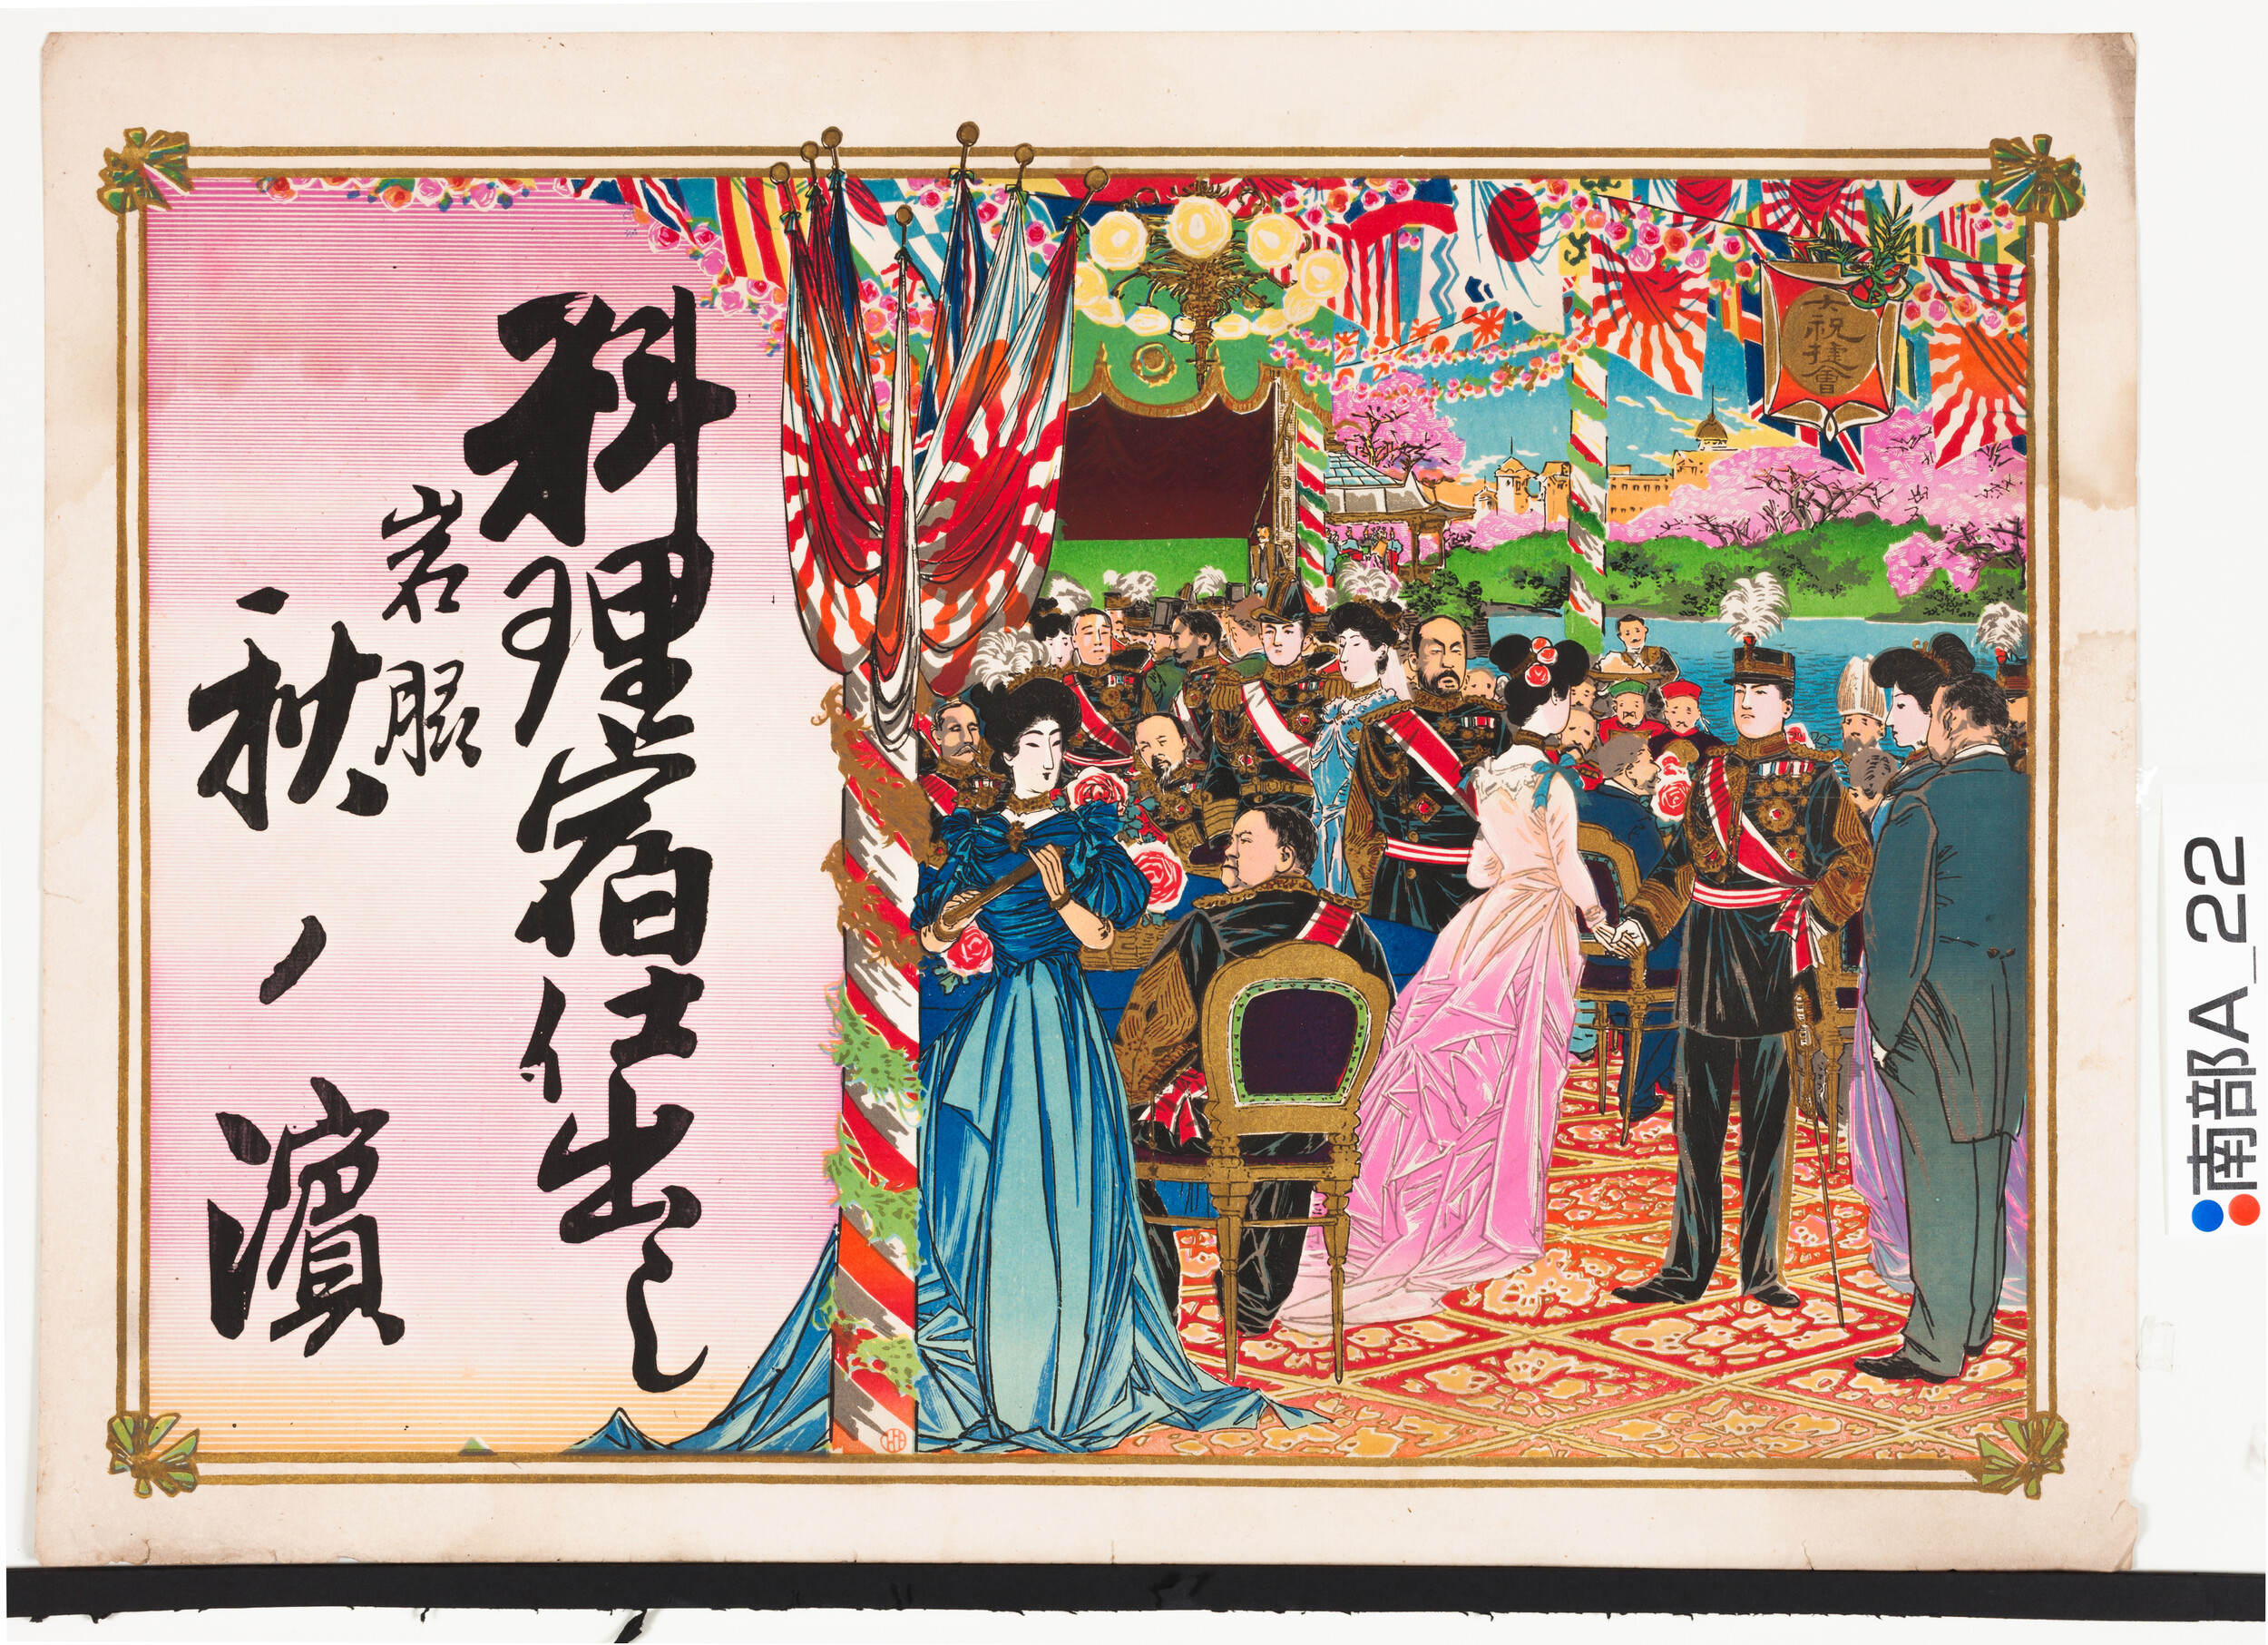 大祝捷會
料理宿仕出し
岩
秋ノ濱
南部A_22